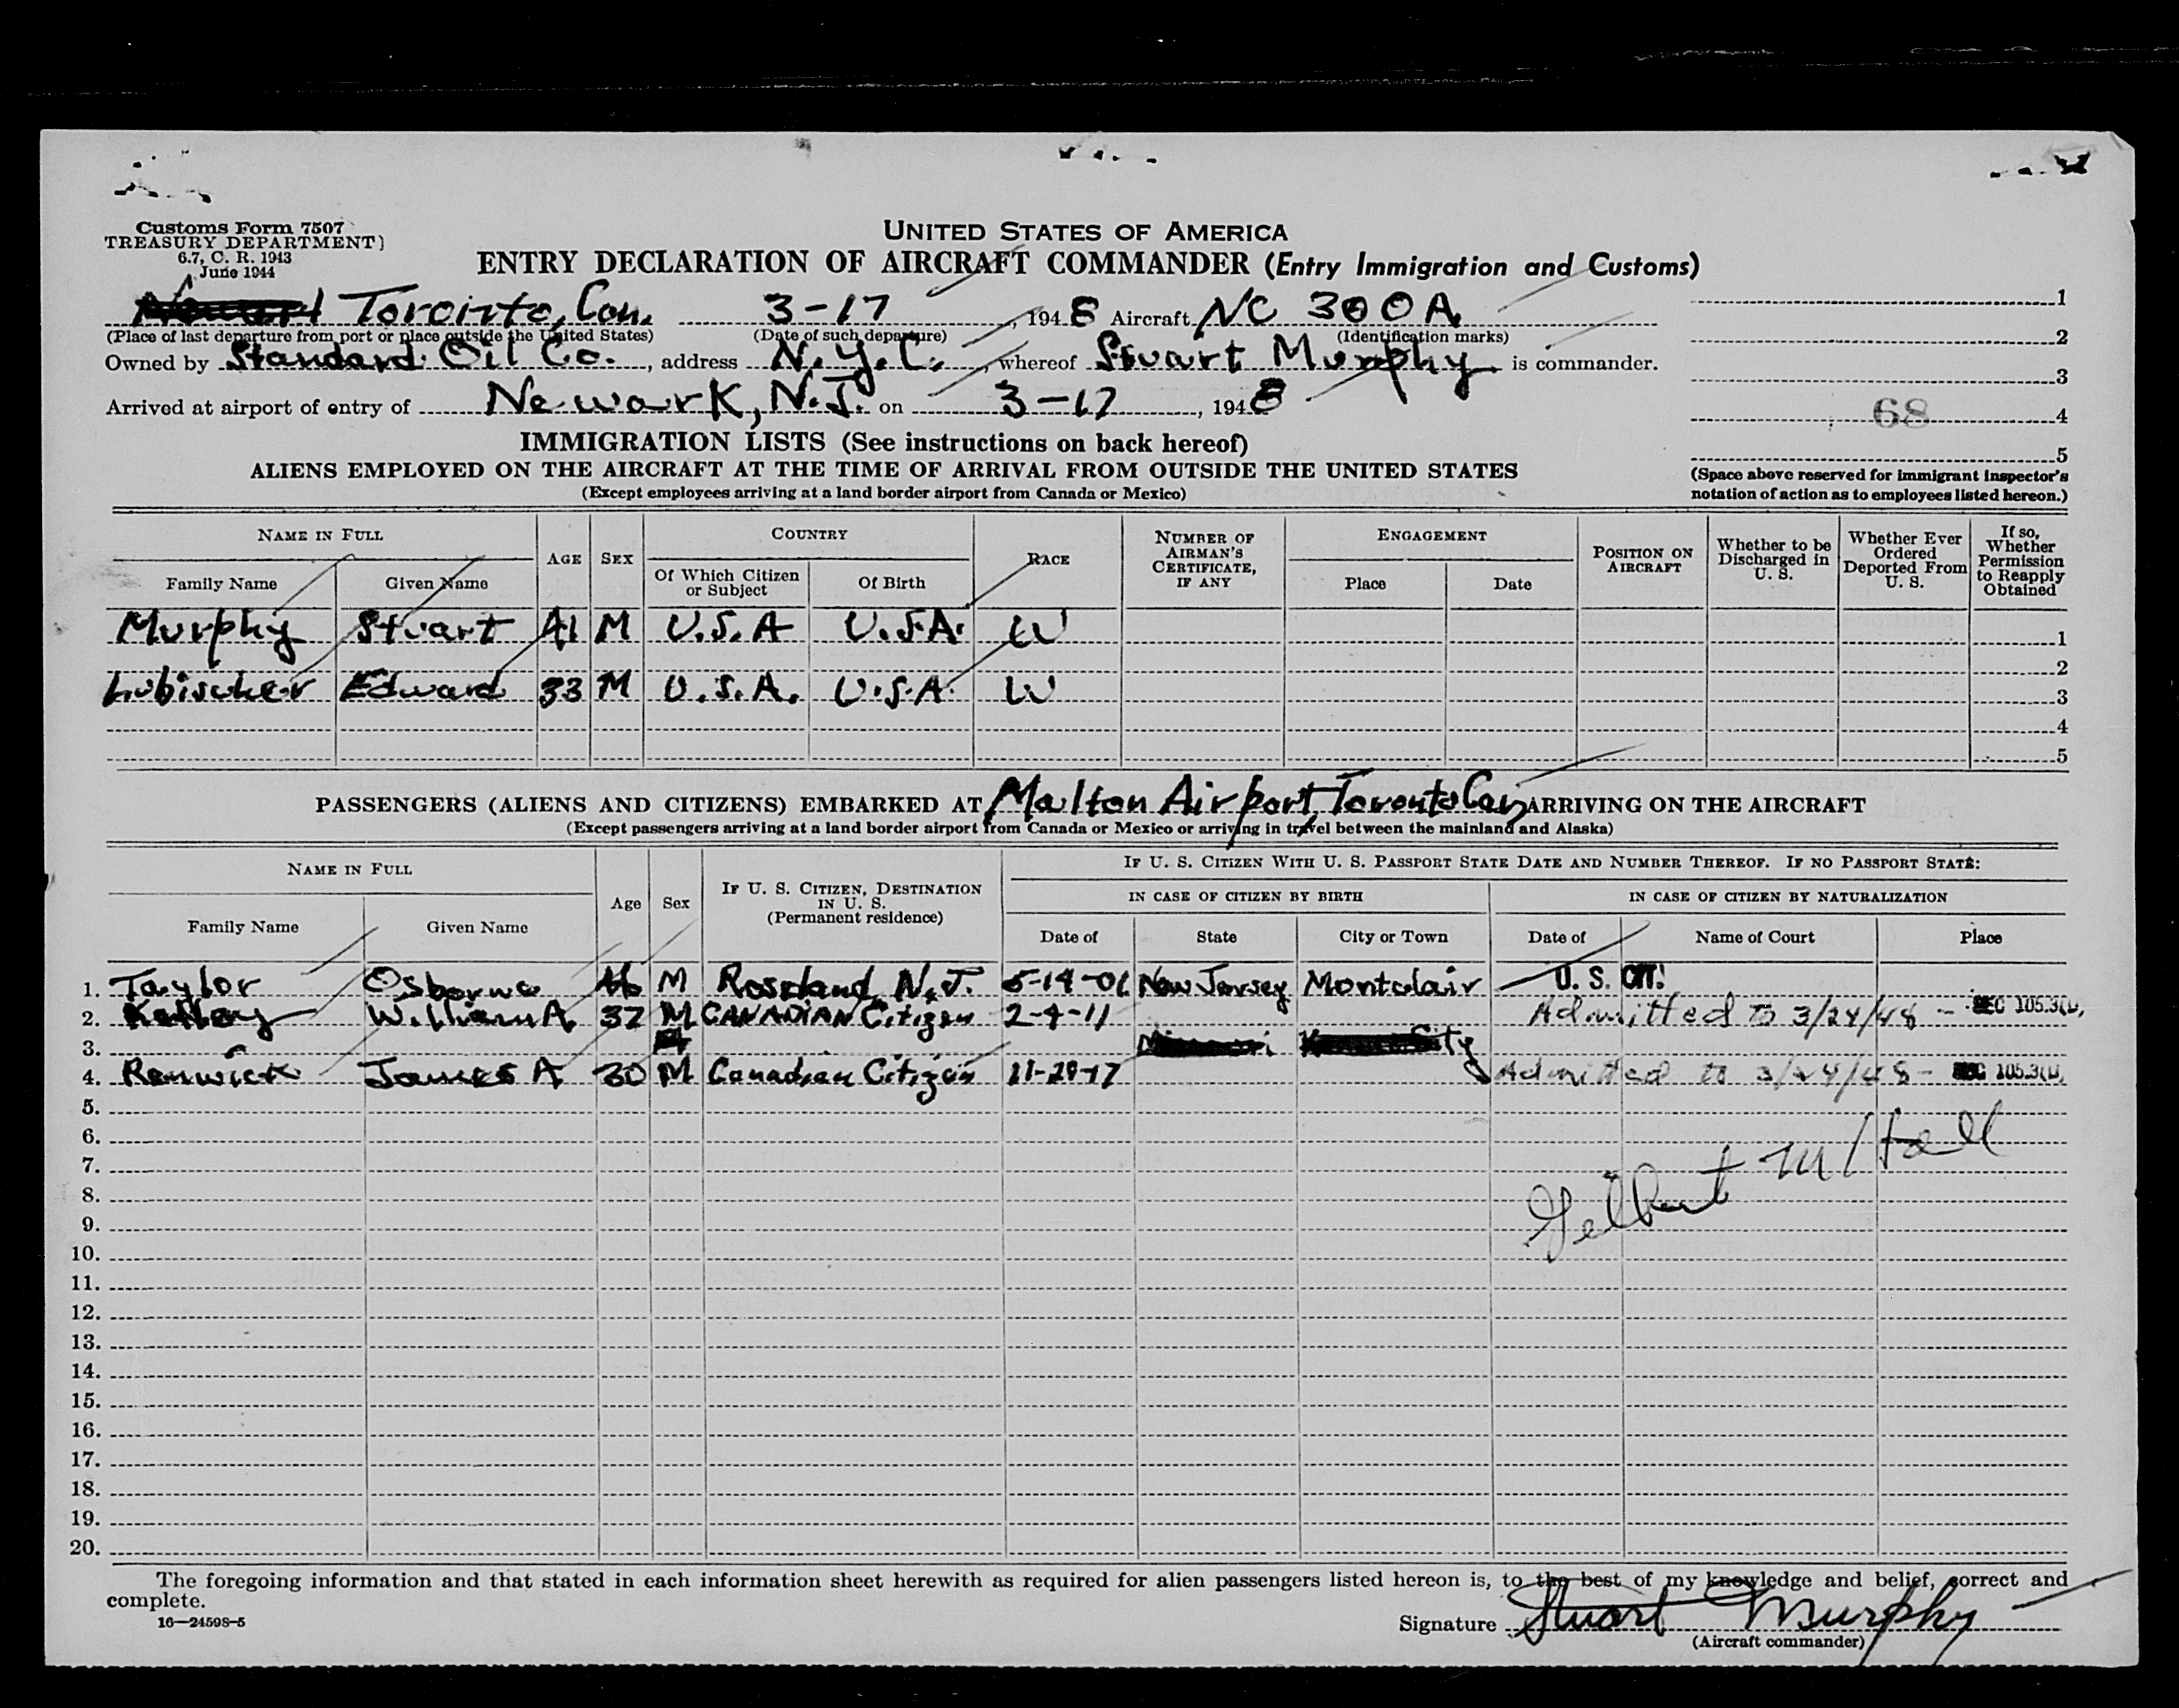 Customs Form 7507
TREASURY DEPARTMENT
6.7, C. R. 1943
June 1944
UNITED STATES OF AMERICA
ENTRY DECLARATION OF AIRCRAFT COMMANDER (Entry Immigration and Customs)
Toronto, Can. 3-17, 1948 Aircraft NC 300A 1
(Place of last departure from port or place outside the United States) (Date of such departure) (Identification marks) 2
Owned by Standard Oil Co., address N.Y.C., whereof Stuart Murphy is commander.
3
Arrived at airport of entry of Newark, N.J. on 3-17, 1948
68 4
IMMIGRATION LISTS (See instructions on back hereof)
5
ALIENS EMPLOYED ON THE AIRCRAFT AT THE TIME OF ARRIVAL FROM OUTSIDE THE UNITED STATES
(Except employees arriving at a land border airport from Canada or Mexico)
(Space above reserved for immigrant inspector's
notation of action as to employees listed hereon.)
NAME IN FULL AGE SEX COUNTRY RACE NUMBER OF AIRMAN'S CERTIFICATE, IF ANY ENGAGEMENT POSITION ON AIRCRAFT Whether to be Discharged in U. S. Whether Ever Ordered Deported From U. S. If so, Whether Permission to Reapply Obtained
Family Name Given Name Of Which Citizen or Subject Of Birth Place Date
Murphy Stuart 41 M U.S.A U.S.A. W 1
2
Lubischer Edward 33 M U.S.A. U.S.A. W 3
4
5
PASSENGERS (ALIENS AND CITIZENS) EMBARKED AT Malton Airport, Toronto Can ARRIVING ON THE AIRCRAFT
(Except passengers arriving at a land border airport from Canada or Mexico or arriving in travel between the mainland and Alaska)
NAME IN FULL Age Sex IF U. S. CITIZEN, DESTINATION IN U. S. (Permanent residence) IF U. S. CITIZEN WITH U. S. PASSPORT STATE DATE AND NUMBER THEREOF. IF NO PASSPORT STATE:
IN CASE OF CITIZEN BY BIRTH IN CASE OF CITIZEN BY NATURALIZATION
Family Name Given Name Date of State City or Town Date of Name of Court Place
1. Taylor Osborne 46 M Roseland N.J. 5-14-01 New Jersey Montclair U. S. CIT.
2. Kelley William A. 37 M CANADIAN Citizen 2-4-11 Admitted to 3/24/48 - SEC 105.3(b)
3.
4. Renwick James A 30 M Canadian Citizen 11-20-17 Admitted to 3/24/48 - SEC 105.3(b)
5.
6.
7.
8.
Gilbert M Hall
9.
10.
11.
12.
13.
14.
15.
16.
17.
18.
19.
20.
The foregoing information and that stated in each information sheet herewith as required for alien passengers listed hereon is, to the best of my knowledge and belief, correct and
complete.
16—24598-5
Signature Stuart Murphy
(Aircraft commander)